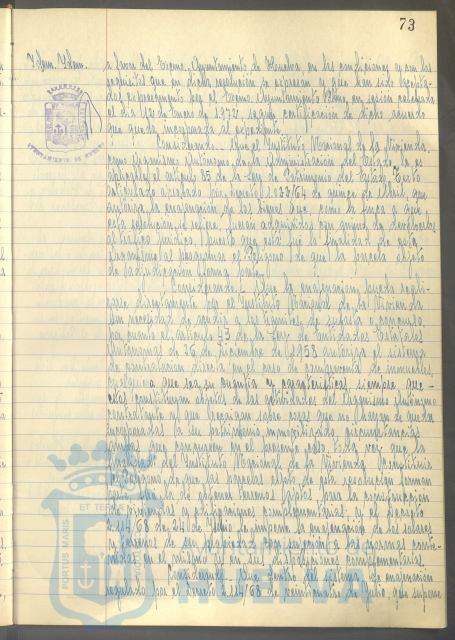 73
Idem. Idem.
a favor del Excmo. Ayuntamiento de Huelva, en las condiciones y con los
requisitos que en dicha resolución se expresan y que han sido acepta-
das expresamente por el Excmo. Ayuntamiento Pleno, en sesión celebrada
el día 12 de Enero de 1972, según certificación de dicho acuerdo
que queda incorporada al expediente.
Considerando.- Que el Instituto Nacional de la Vivienda,
como Organismo Autónomo de la Administración del Estado, le es
aplicable el artículo 85 de la Ley de Patrimonio del Estado, Texto
articulado aprobado por Decreto 1022/64 de quince de Abril, que
autoriza la enajenación de los bienes que, como la finca a que
esta resolución se refiere, fueron adquiridos con ánimo de devolverlos
al tráfico jurídico, puesto que esta fué la finalidad de este
Organismo al el Polígono de que la parcela objeto
de adjudicación forma parte.
Considerando.- Que la enajenación puede reali-
zarse directamente por el Instituto Nacional de la Vivienda
sin necesidad de acudir a los trámites de subasta o concurso,
por cuanto el artículo de la Ley de Entidades Estatales
Autónomas de 26 de Diciembre de 1958 autoriza el sistema
de contratación directa en el caso de compraventa de inmuebles,
cualquiera que sea su cuantía y características, siempre que
éstas constituyan objetos de las actividades del Organismo Autónomo
contratante y que recaigan sobre cosas que no hayan de quedar
incorporadas a su patrimonio inmovilizado, circunstancias
ambas que concurren en el presente caso, toda vez que la
finalidad del Instituto Nacional de la Vivienda
el Polígono de que las parcelas objeto de esta resolución forman
parte, fué la de obtener terrenos aptos para la construcción
de viviendas y edificaciones complementarias, y el Decreto
2114/68 de 24 de Julio la enajenación de los solares
y terrenos de su propiedad con sujeción a las normas conte-
nidas en el mismo y en sus disposiciones complementarias.
Considerando.- Que dentro del sistema de enajenación
regulado por el Decreto 2.114/68 de veinticuatro de Julio, que supone
AYUNTAMIENTO DE HUELVA
PORTUS MARIS ET TERRAE
HUELVA